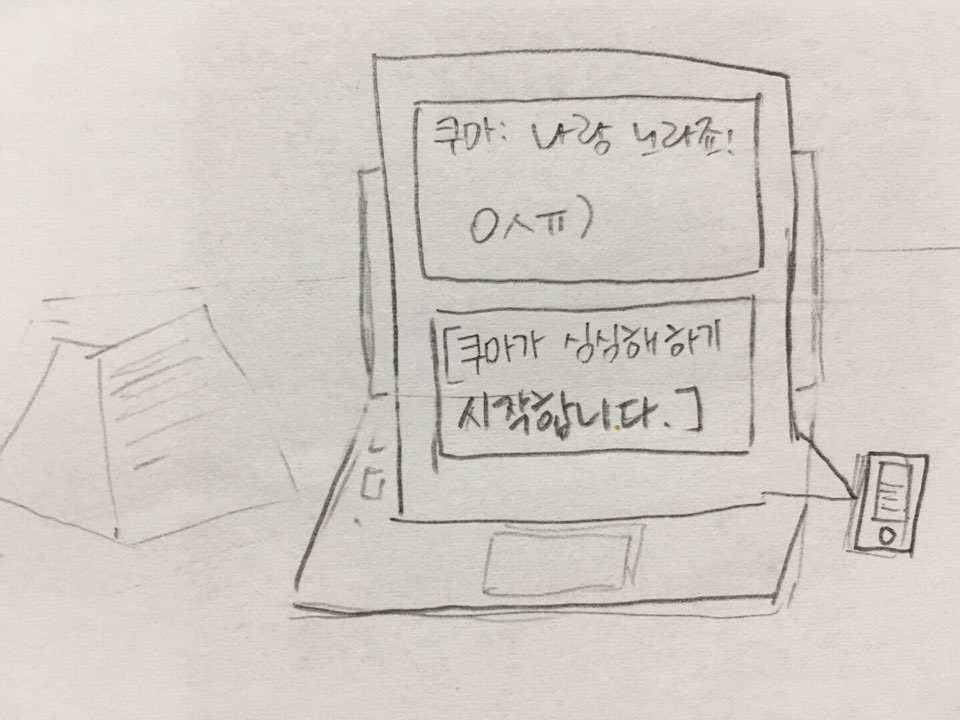 쿠마: 나랑 노라죠!
ㅇㅅㅠ)
[쿠마가 심심해하기
시작합니다.]